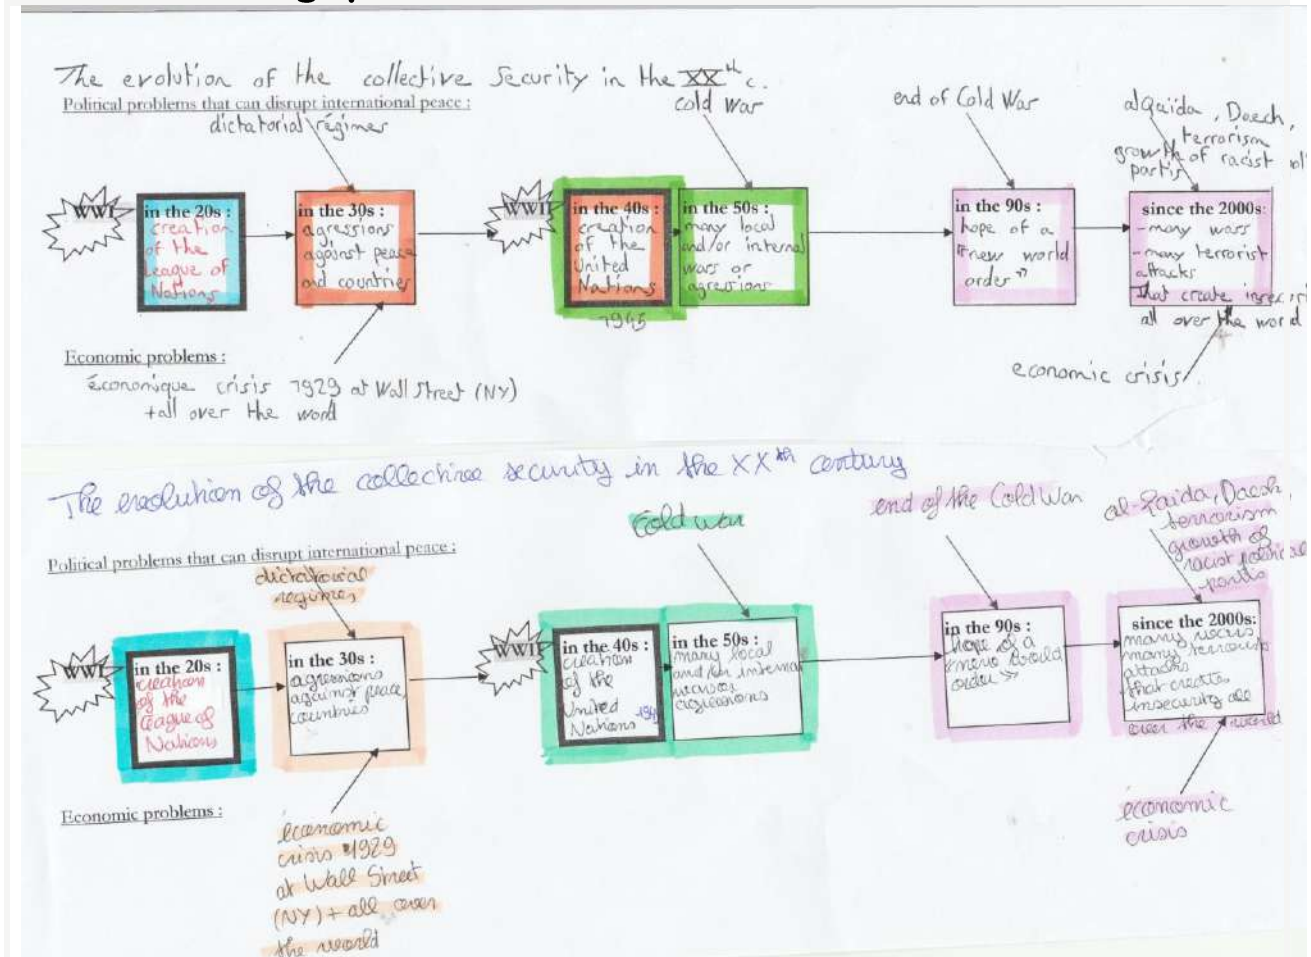 The evolution of the collective Security in the XXth c.
Political problems that can disrupt international peace :
dictatorial régimes
cold War
end of Cold War
alQaïda, Daech,
terrorism
growth of racist
partis
WWI
in the 20s :
creation
of the
League of
Nations
in the 30s :
agressions
against peace
and countries
WWII
in the 40s :
creation
of the
United
Nations
1945
in the 50s :
many local
and/or internal
wars or
agressions
in the 90s :
hope of a
"new world
order"
since the 2000s:
-many wars
-many terrorist
attacks
that create
all over the world
Economic problems :
économique crisis 1929 at Wall Street (NY)
+all over the world
economic crisis
The evolution of the collective security in the XXth century
Political problems that can disrupt international peace :
dictatorial
regimes
Cold war
end of the Cold War
al-Qaida, Daesh,
terrorism
growth of
racist political
partis
WWI
in the 20s :
creation
of the
league of
Nations
in the 30s :
agressions
against peace,
countries
WWII
in the 40s :
creation
of the
United
Nations
in the 50s :
many local
and/or internal
agressions
in the 90s :
hope of a
new world
order »
since the 2000s:
many wars
many terrorist
attacks
that creates
insecurity all
over the world
Economic problems :
économic
crisis 1929
at Wall Street
(NY) + all over
the world
économic
crisis